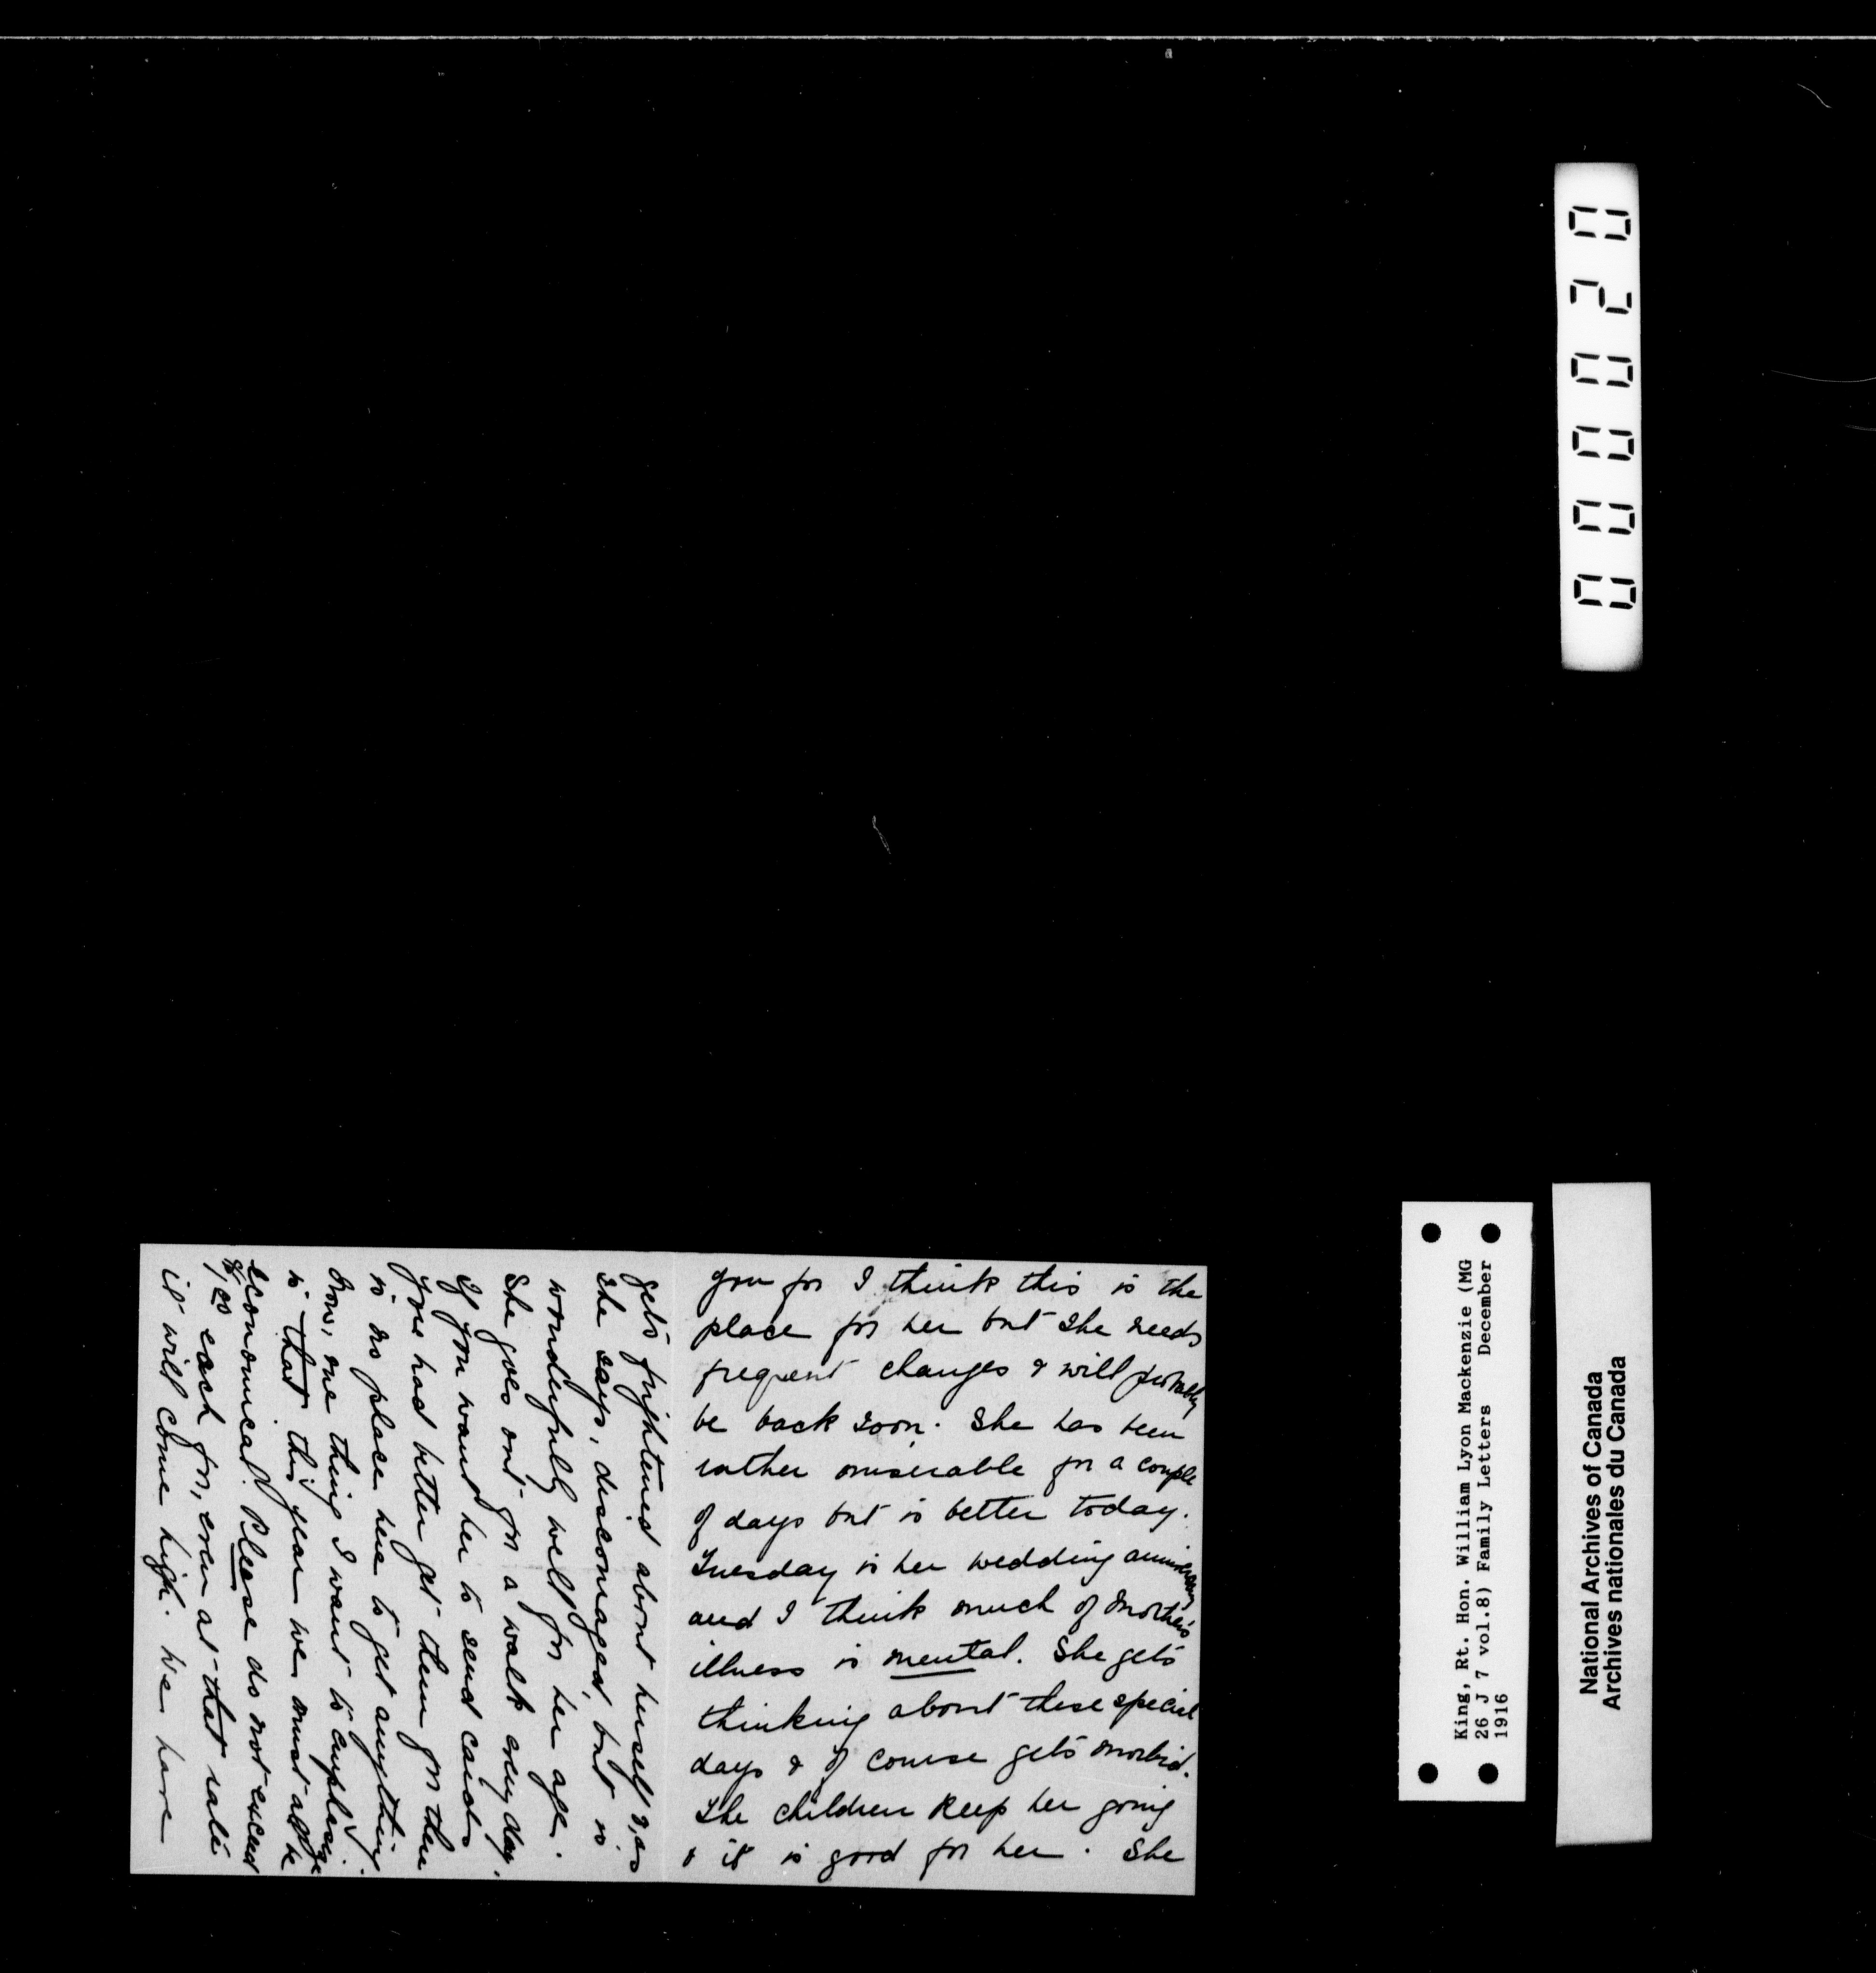 you for I think this is the
place for her but she needs
frequent changes & will probably
be back soon. She has been
rather miserable for a couple
of days but is better today.
Tuesday is her wedding anniversary
and I think much of Mother's
illness is mental. She gets
thinking about these special
days & of course gets morbid.
The children keep her going
& it is good for her. She
gets frightened about herself &, as
she says, discouraged, but is
wonderfully well for her age.
She goes out for a walk every day.
If you want her to send cards
you had better get them for there
is no place here to get anything.
Now, one thing I want to emphasize
is that this year we must all be
economical. Please do not exceed
$1.00 each for, even at that rate
it will come high. We have
000020
King, Rt. Hon. William Lyon Mackenzie (MG
26 J 7 vol.8) Family Letters December
1916
National Archives of Canada
Archives nationales du Canada